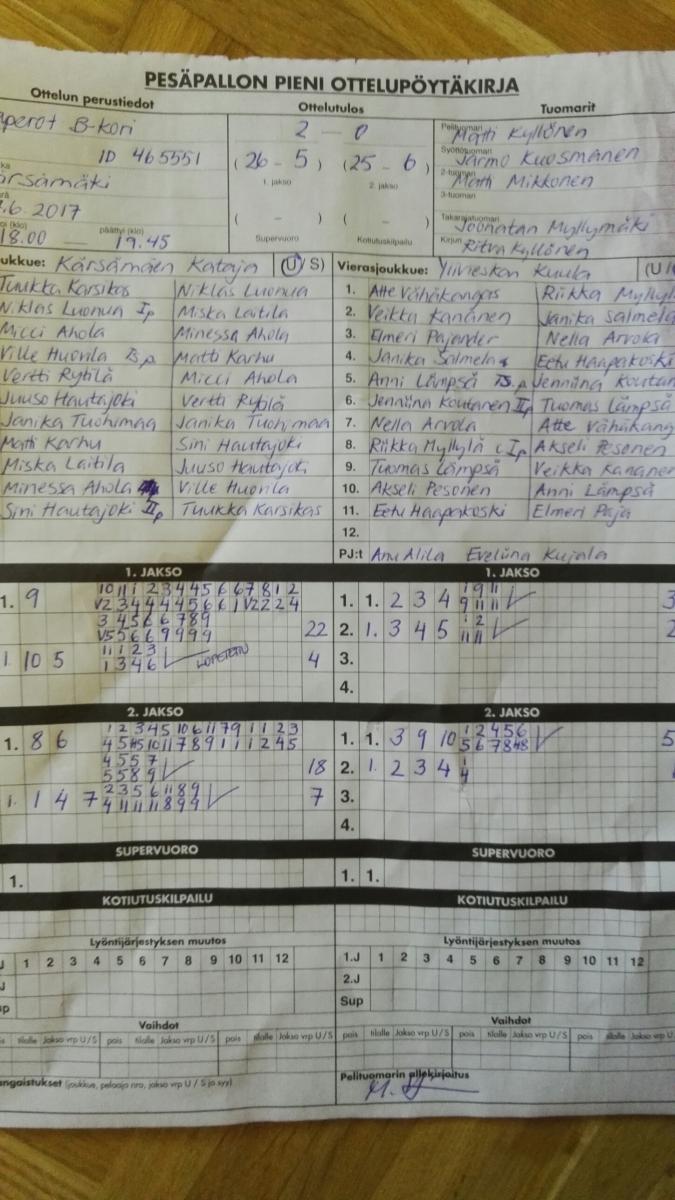 PESÄPALLON PIENI OTTELUPÖYTÄKIRJA
Ottelun perustiedot Ottelutulos Tuomarit
perot B-kori 2 – 0 Pelituomari Matti Kyllönen
ID 465551 (26 – 5) (25 – 6) Syöttötuomari Jarmo Kuosmanen
1. jakso 2. jakso 2-tuomari Matti Mikkonen
ärsämäki 3-tuomari
.6. 2017 ( – ) ( – ) Takarajatuomari Joonatan Myllymäki
18.00 päättyi (klo) 19.45 Supervuoro Kotiutuskilpailu Kirjuri Ritva Kyllönen
ukkue: Kärsämäen Kataja (U/S) Vierasjoukkue: Ylivieskan Kuula (U /
Tuukka Karsikas Niklas Luonua 1. Atte Vähäkangas Riikka Myllyl
Niklas Luonua Ip Miska Laitila 2. Veikka Kananen Janika Salmela
Micci Ahola Minessa Ahola 3. Elmeri Pajander Nella Arvola
Ville Huovila Matti Karhu 4. Janika Salmela Eetu Haapakoski
Vertti Rytilä Micci Ahola 5. Anni Lämpsä Jenniina Koutan
Juuso Hautajoki Vertti Rytilä 6. Jenniina Koutanen IIp Tuomas Lämpsä
Janika Tuohimaa Janika Tuohimaa 7. Nella Arvola Atte Vähäkang
Matti Karhu Sini Hautajoki 8. Riikka Myllylä Ip Akseli Pesonen
Miska Laitila Juuso Hautajoki 9. Tuomas Lämpsä Veikka Kananen
Minessa Ahola Ville Huovila 10. Akseli Pesonen Anni Lämpsä
Sini Hautajoki IIp Tuukka Karsikas 11. Eetu Haapakoski Elmeri Paja
12.
PJ:t Anu Alila Eveliina Kujala
1. JAKSO 1. JAKSO
1. 9 10 11 1 2 3 4 4 5 6 6 7 8 1 2 1. 1. 2 3 4 1 9 11 3
V2 3 4 4 4 4 4 5 6 6 1 V2 2 2 4 9 11 11
3 4 5 6 6 7 8 9 22 2. 1. 3 4 5 1 2 2
V5 5 6 6 9 9 9 9 11 11
1. 10 5 11 1 2 3 LOPETETTU 4 3.
1 3 4 6
4.
2. JAKSO 2. JAKSO
1. 8 6 1 2 3 4 5 10 6 11 7 9 1 1 2 3 1. 1. 3 9 10 1 2 4 5 6 5
4 5 45 10 11 7 8 9 1 1 1 2 4 5 5 6 7 8 48
4 5 5 7 18 2. 1. 2 3 4 1
5 5 8 9 4
1. 1 4 7 2 3 5 6 11 8 9 7 3.
4 11 11 11 8 9 9
4.
SUPERVUORO SUPERVUORO
1. 1. 1.
KOTIUTUSKILPAILU KOTIUTUSKILPAILU
Lyöntijärjestyksen muutos Lyöntijärjestyksen muutos
J 1 2 3 4 5 6 7 8 9 10 11 12 1.J 1 2 3 4 5 6 7 8 9 10 11 12
J 2.J
up Sup
Vaihdot Vaihdot
is tilalle Jakso vrp U/S pois tilalle Jakso vrp U/S pois tilalle Jakso vrp U/S pois tilalle Jakso vrp U/S pois tilalle Jakso vrp U/S pois tilalle
angaistukset (joukkue, pelaaja nro, jakso vrp U / S ja syy) Pelituomarin allekirjoitus